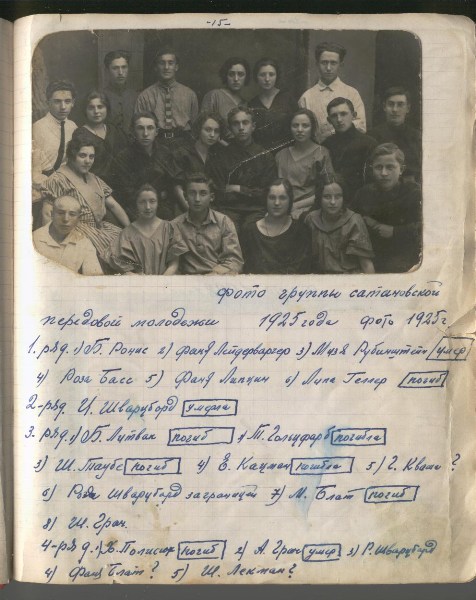 -15-
фото группы сатановской
передовой молодежи 1925 года фото 1925 г.
1. ряд. 1) Б. Ройис 2) Фаня Лейдерваргер 3) Музя Рубинштейн умер
4) Роза Басс 5) Фаня Лапцин 6) Лупа Геллер погиб
2-ряд. Ц. Шварцборд умерла
3. ряд. 1) Б. Литвак погиб Т. Гольдфарб погибла
3) Ш. Таубе погиб 4) Е. Кацман погибла 5) Г. Кваша ?
6) Рядя Шварцборд заграницей 7) М. Блат погиб
8) Ш. Грач.
4-ряд. 1) Полисар погиб 2) А. Грач умер 3) Р. Шварцборд
4) Фаня Блат ? 5) Ш. Лехтман ?